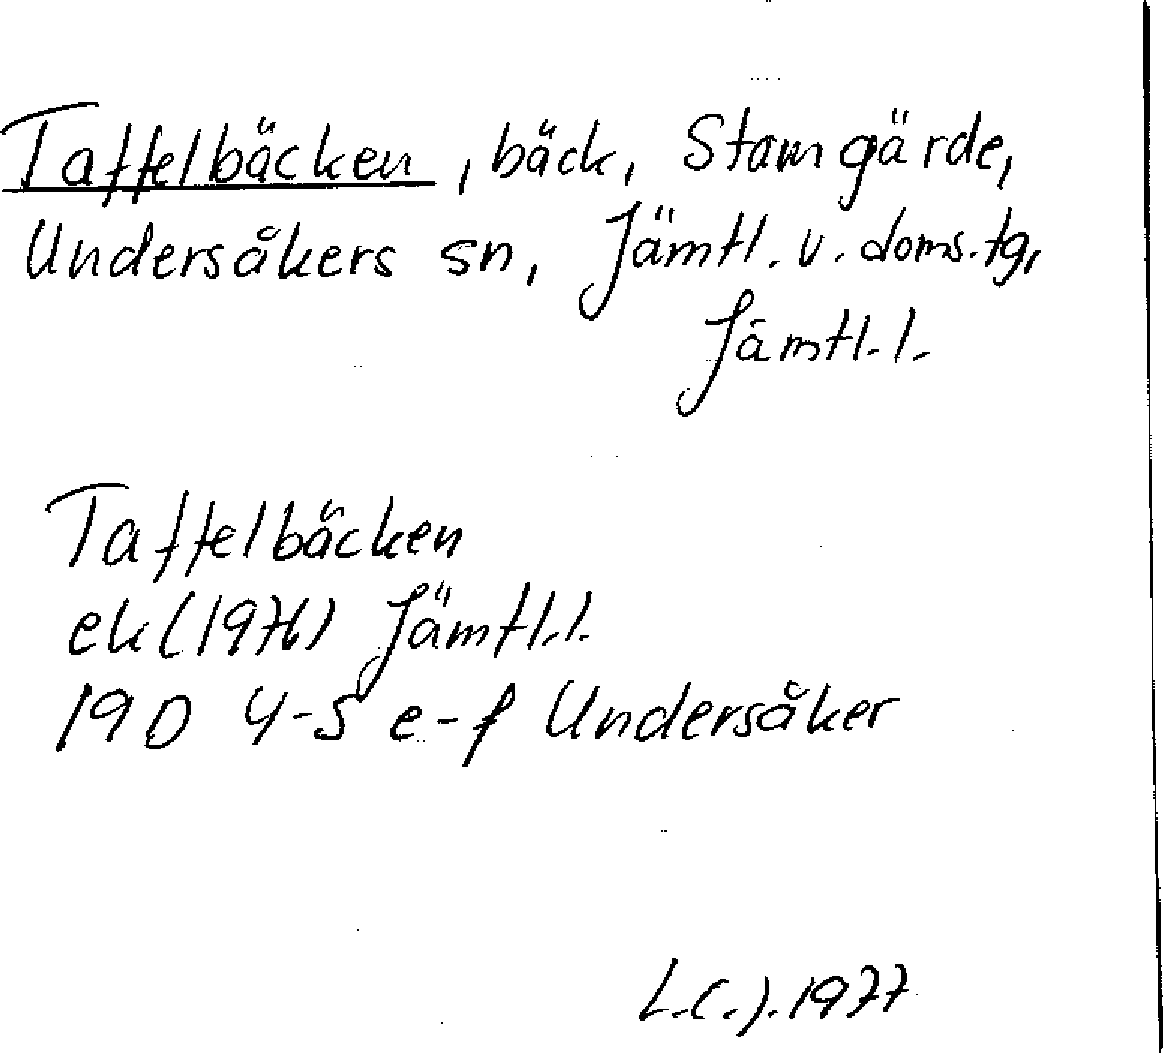 Taffelbäcken, bäck, Stamgärde,
Undersåkers sn, Jämtl. v. doms. tg,
Jämtl. l.
Taffelbäcken
ek (1976) Jämtl. l.
19D 4-5 e-f Undersåker
L.C.J. 1977